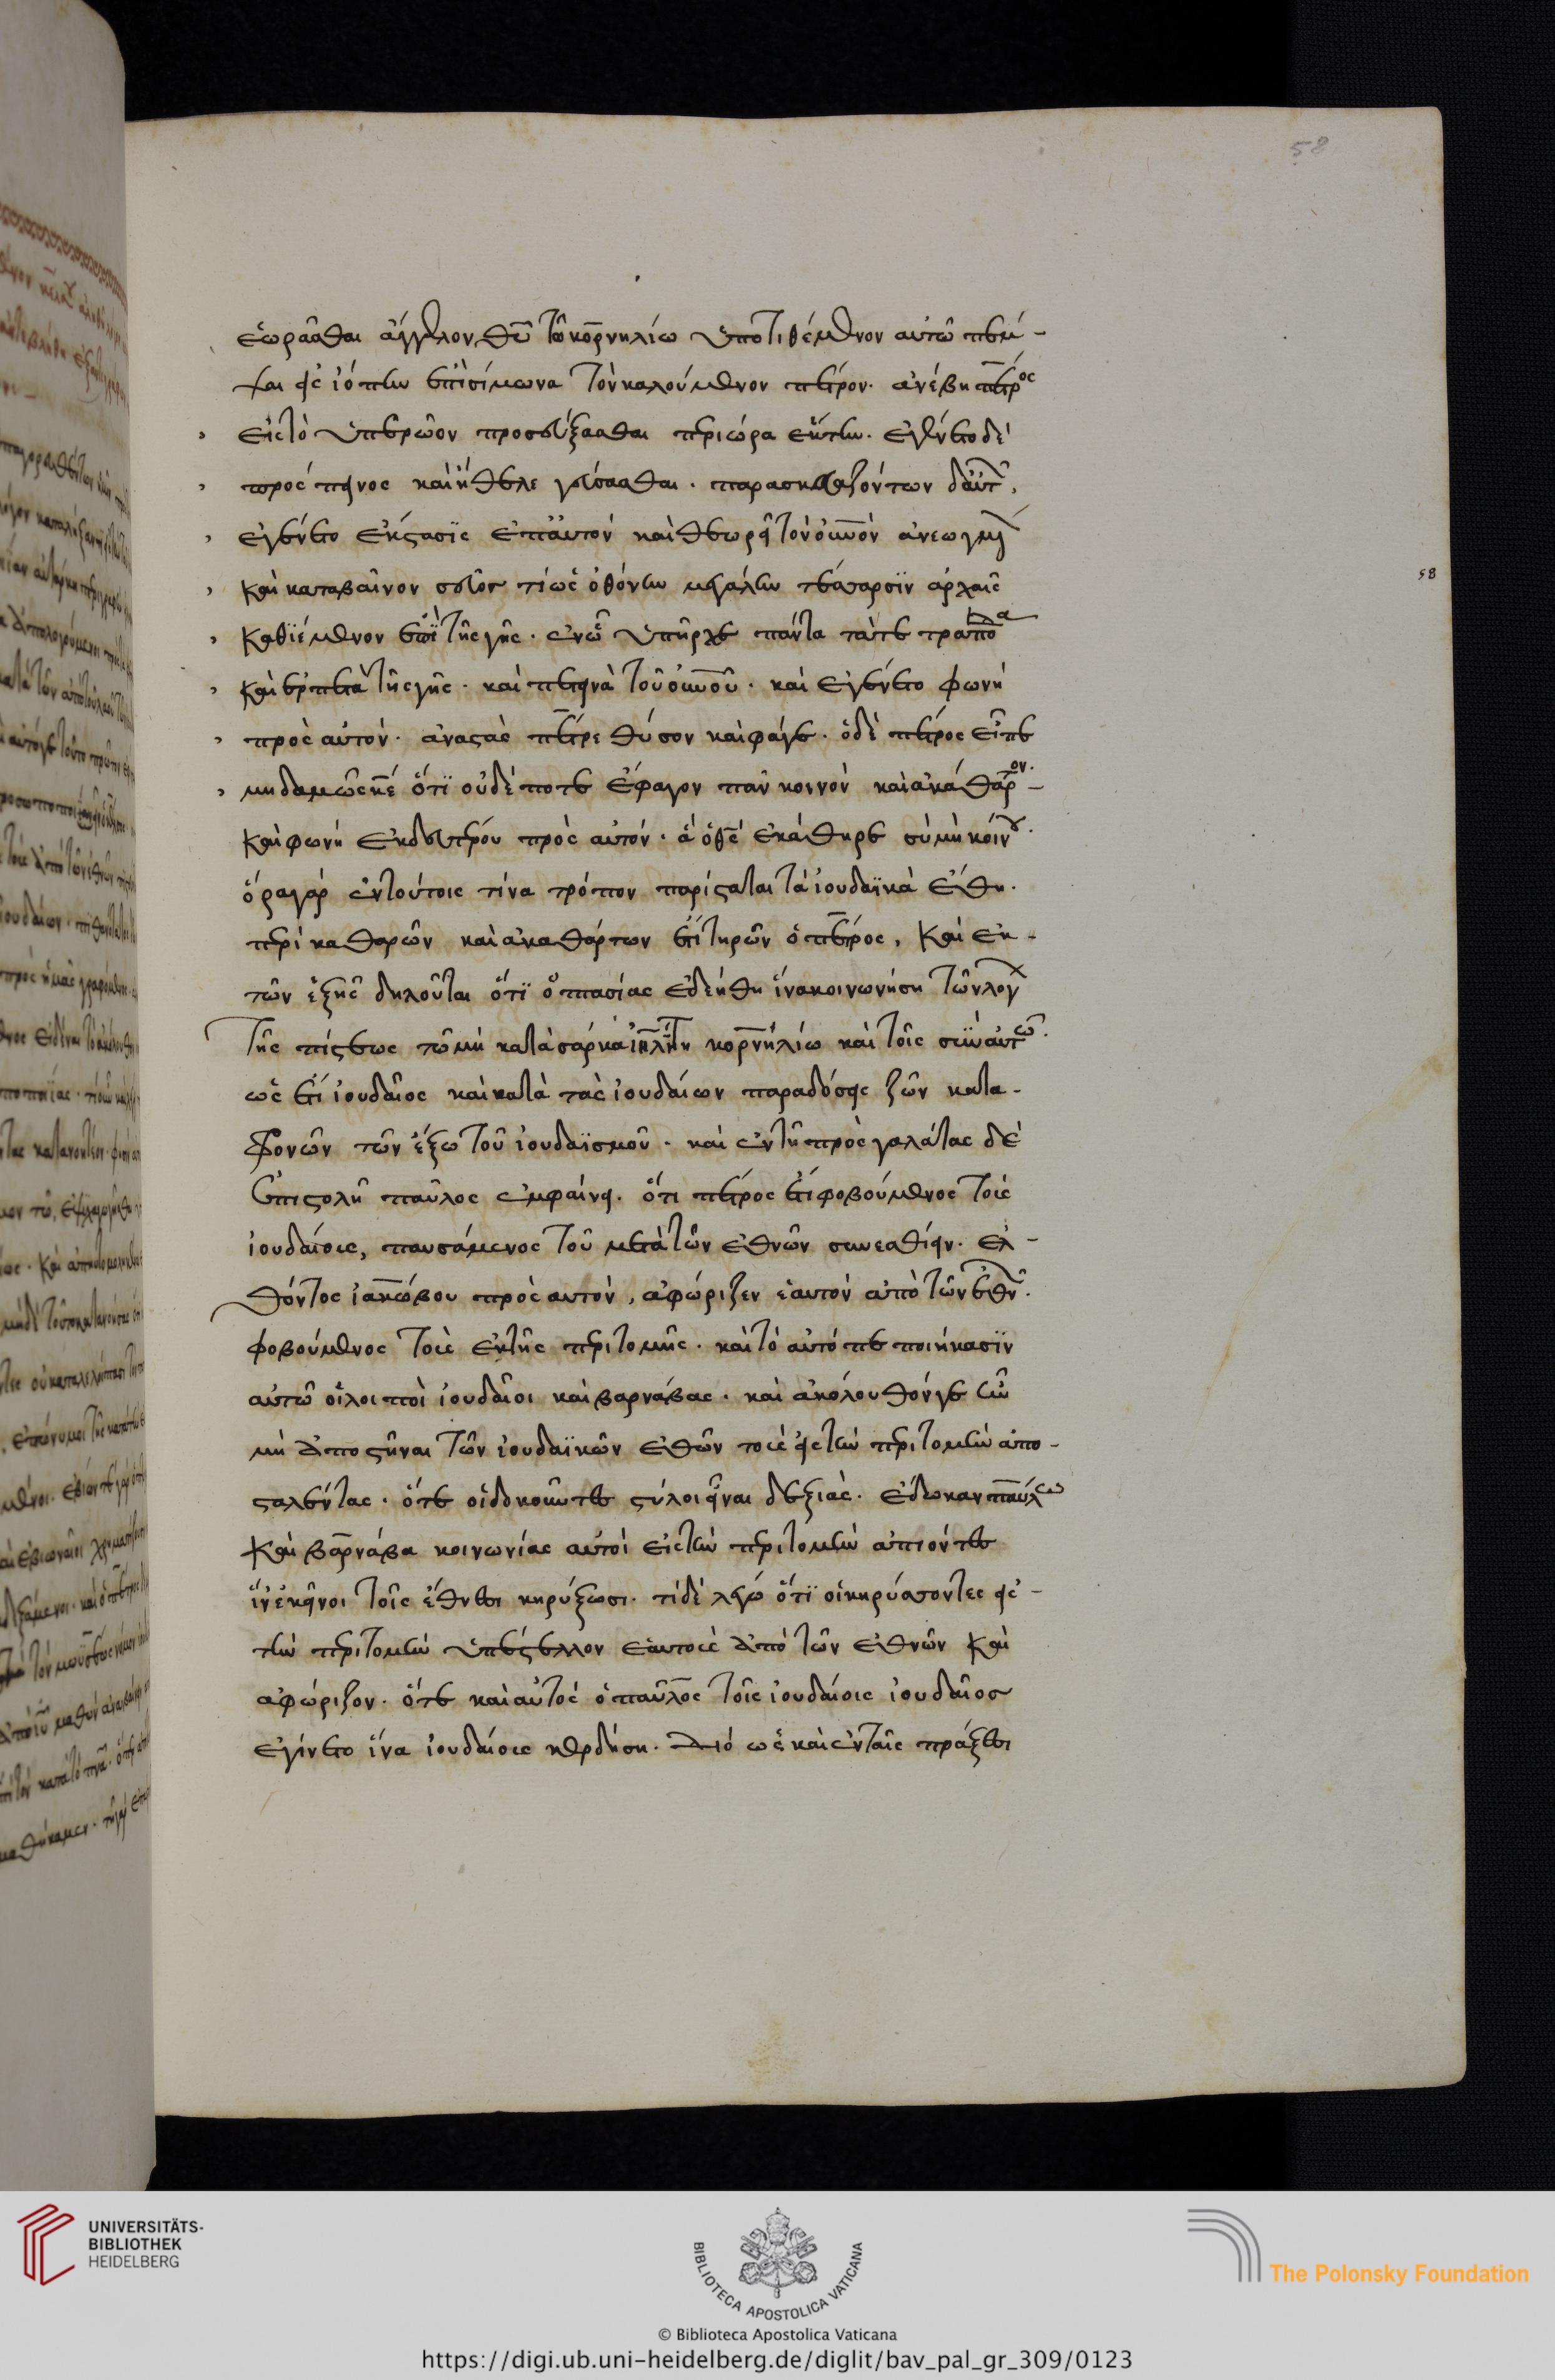 58
ἑωρᾶσθαι ἄγγελον θῦ τῶ κορνηλίω ὑποτιθέμενον αὐτῶ πέμ-
ψαι εἰς ἰόπην ἐπὶ σίμωνα τὸν καλούμενον πέτρον. ἀνέβη πέτρος
εἰς τὸ ὑπερῶον προσεύξασθαι περὶ ὥρα ἕκτην. ἐγένετο δὲ
πρόσπεινος καὶ ἤθελε γεύσασθαι. παρασκευαζόντων δ' αὐτῶν,
ἐγένετο ἔκστασϊς ἐπ' αὐτὸν καὶ θεωρεῖ τὸν οὐνὸν ἀνεωγμένον
καὶ καταβαῖνον σκεῦος τι ὡς ὀθόνην μεγάλην τέσσαρσϊν ἀρχαῖς
καθϊέμενον ἐπὶ τῆς γῆς. ἐν ὧ ὑπῆρχε πάντα τὰ τετράποδα
καὶ ἑρπετὰ τῆς γῆς. καὶ πετεινὰ τοῦ οὐνοῦ. καὶ ἐγένετο φωνὴ
πρὸς αὐτόν. ἀναστὰς πέτρε θύσον καὶ φάγε. ὁ δὲ πέτρος εἶπε
μηδαμῶς κε ὅτϊ οὐδέποτε ἔφαγον πᾶν κοινὸν καὶ ἀκάθαρτον.
καὶ φωνὴ ἐκ δευτέρου πρὸς αὐτόν. ἃ ὁ θς ἐκάθηρε σὺ μὴ κοίνου.
ὅρα γὰρ ἐν τούτοις τίνα τρόπον παρίσταται τὰ ἰουδαϊκὰ ἔθη.
περὶ καθαρῶν καὶ ἀκαθάρτων ἔτι τηρῶν ὁ πέτρος, καὶ ἐκ
τῶν ἑξῆς δηλοῦται ὅτϊ ὀπτασίας ἐδεήθη ἵνα κοινωνήση τῶν λόγων
τῆς πίστεως τῶ μὴ κατὰ σάρκα ἰηλίτη κορνηλίω καὶ τοῖς σὺν αὐτῶ.
ὡς ἔτι ἰουδαῖος καὶ κατὰ τὰς ἰουδαίων παραδόσεις ζῶν κατα-
φρονῶν τῶν ἔξω τοῦ ἰουδαϊσμοῦ. καὶ ἐν τῆ πρὸς γαλάτας δὲ
ἐπιστολῆ παῦλος ἐμφαίνει. ὅτι πέτρος ἔτι φοβούμενος τοὺς
ἰουδαίους, παυσάμενος τοῦ μετὰ τῶν ἐθνῶν συνεσθίειν. ἐλ-
θόντος ἰακώβου πρὸς αὐτόν, ἀφώριζεν ἑαυτὸν ἀπὸ τῶν ἐθνῶν.
φοβούμενος τοὺς ἐκ τῆς περιτομῆς. καὶ τὸ αὐτό πεποιήκασϊν
αὐτῶ οἱ λοιποὶ ἰουδαῖοι καὶ βαρνάβας. καὶ ἀκόλουθόν γε ἦν
μὴ ἀποστῆναι τῶν ἰουδαϊκῶν ἐθῶν τοὺς εἰς τὴν περιτομὴν ἀπο-
σταλέντας. ὅτε οἱ δοκοῦντες στύλοι εἶναι δεξιὰς. ἔδωκαν παύλω
καὶ βαρνάβα κοινωνίας αὐτοὶ εἰς τὴν περιτομὴν ἀπιόντες
ἵν' ἐκεῖνοι τοῖς ἔθνεσι κηρύξωσι. τί δὲ λέγω ὅτϊ οἱ κηρύσσοντες εἰς
τὴν περιτομὴν ὑπέστελλον ἑαυτοὺς ἀπὸ τῶν ἐθνῶν καὶ
ἀφώριζον. ὅτε καὶ αὐτὸς ὁ παῦλος τοῖς ἰουδαίοις ἰουδαῖος
ἐγίνετο ἵνα ἰουδαίους κερδήση. διό ὡς καὶ ἐν ταῖς πράξεσι
58
UNIVERSITÄTS-
BIBLIOTHEK
HEIDELBERG
BIBLIOTECA APOSTOLICA VATICANA
The Polonsky Foundation
© Biblioteca Apostolica Vaticana
https://digi.ub.uni-heidelberg.de/diglit/bav_pal_gr_309/0123